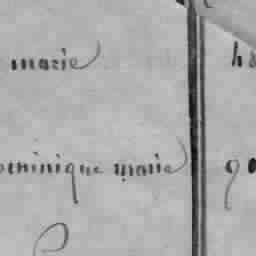 marie
ominique marie